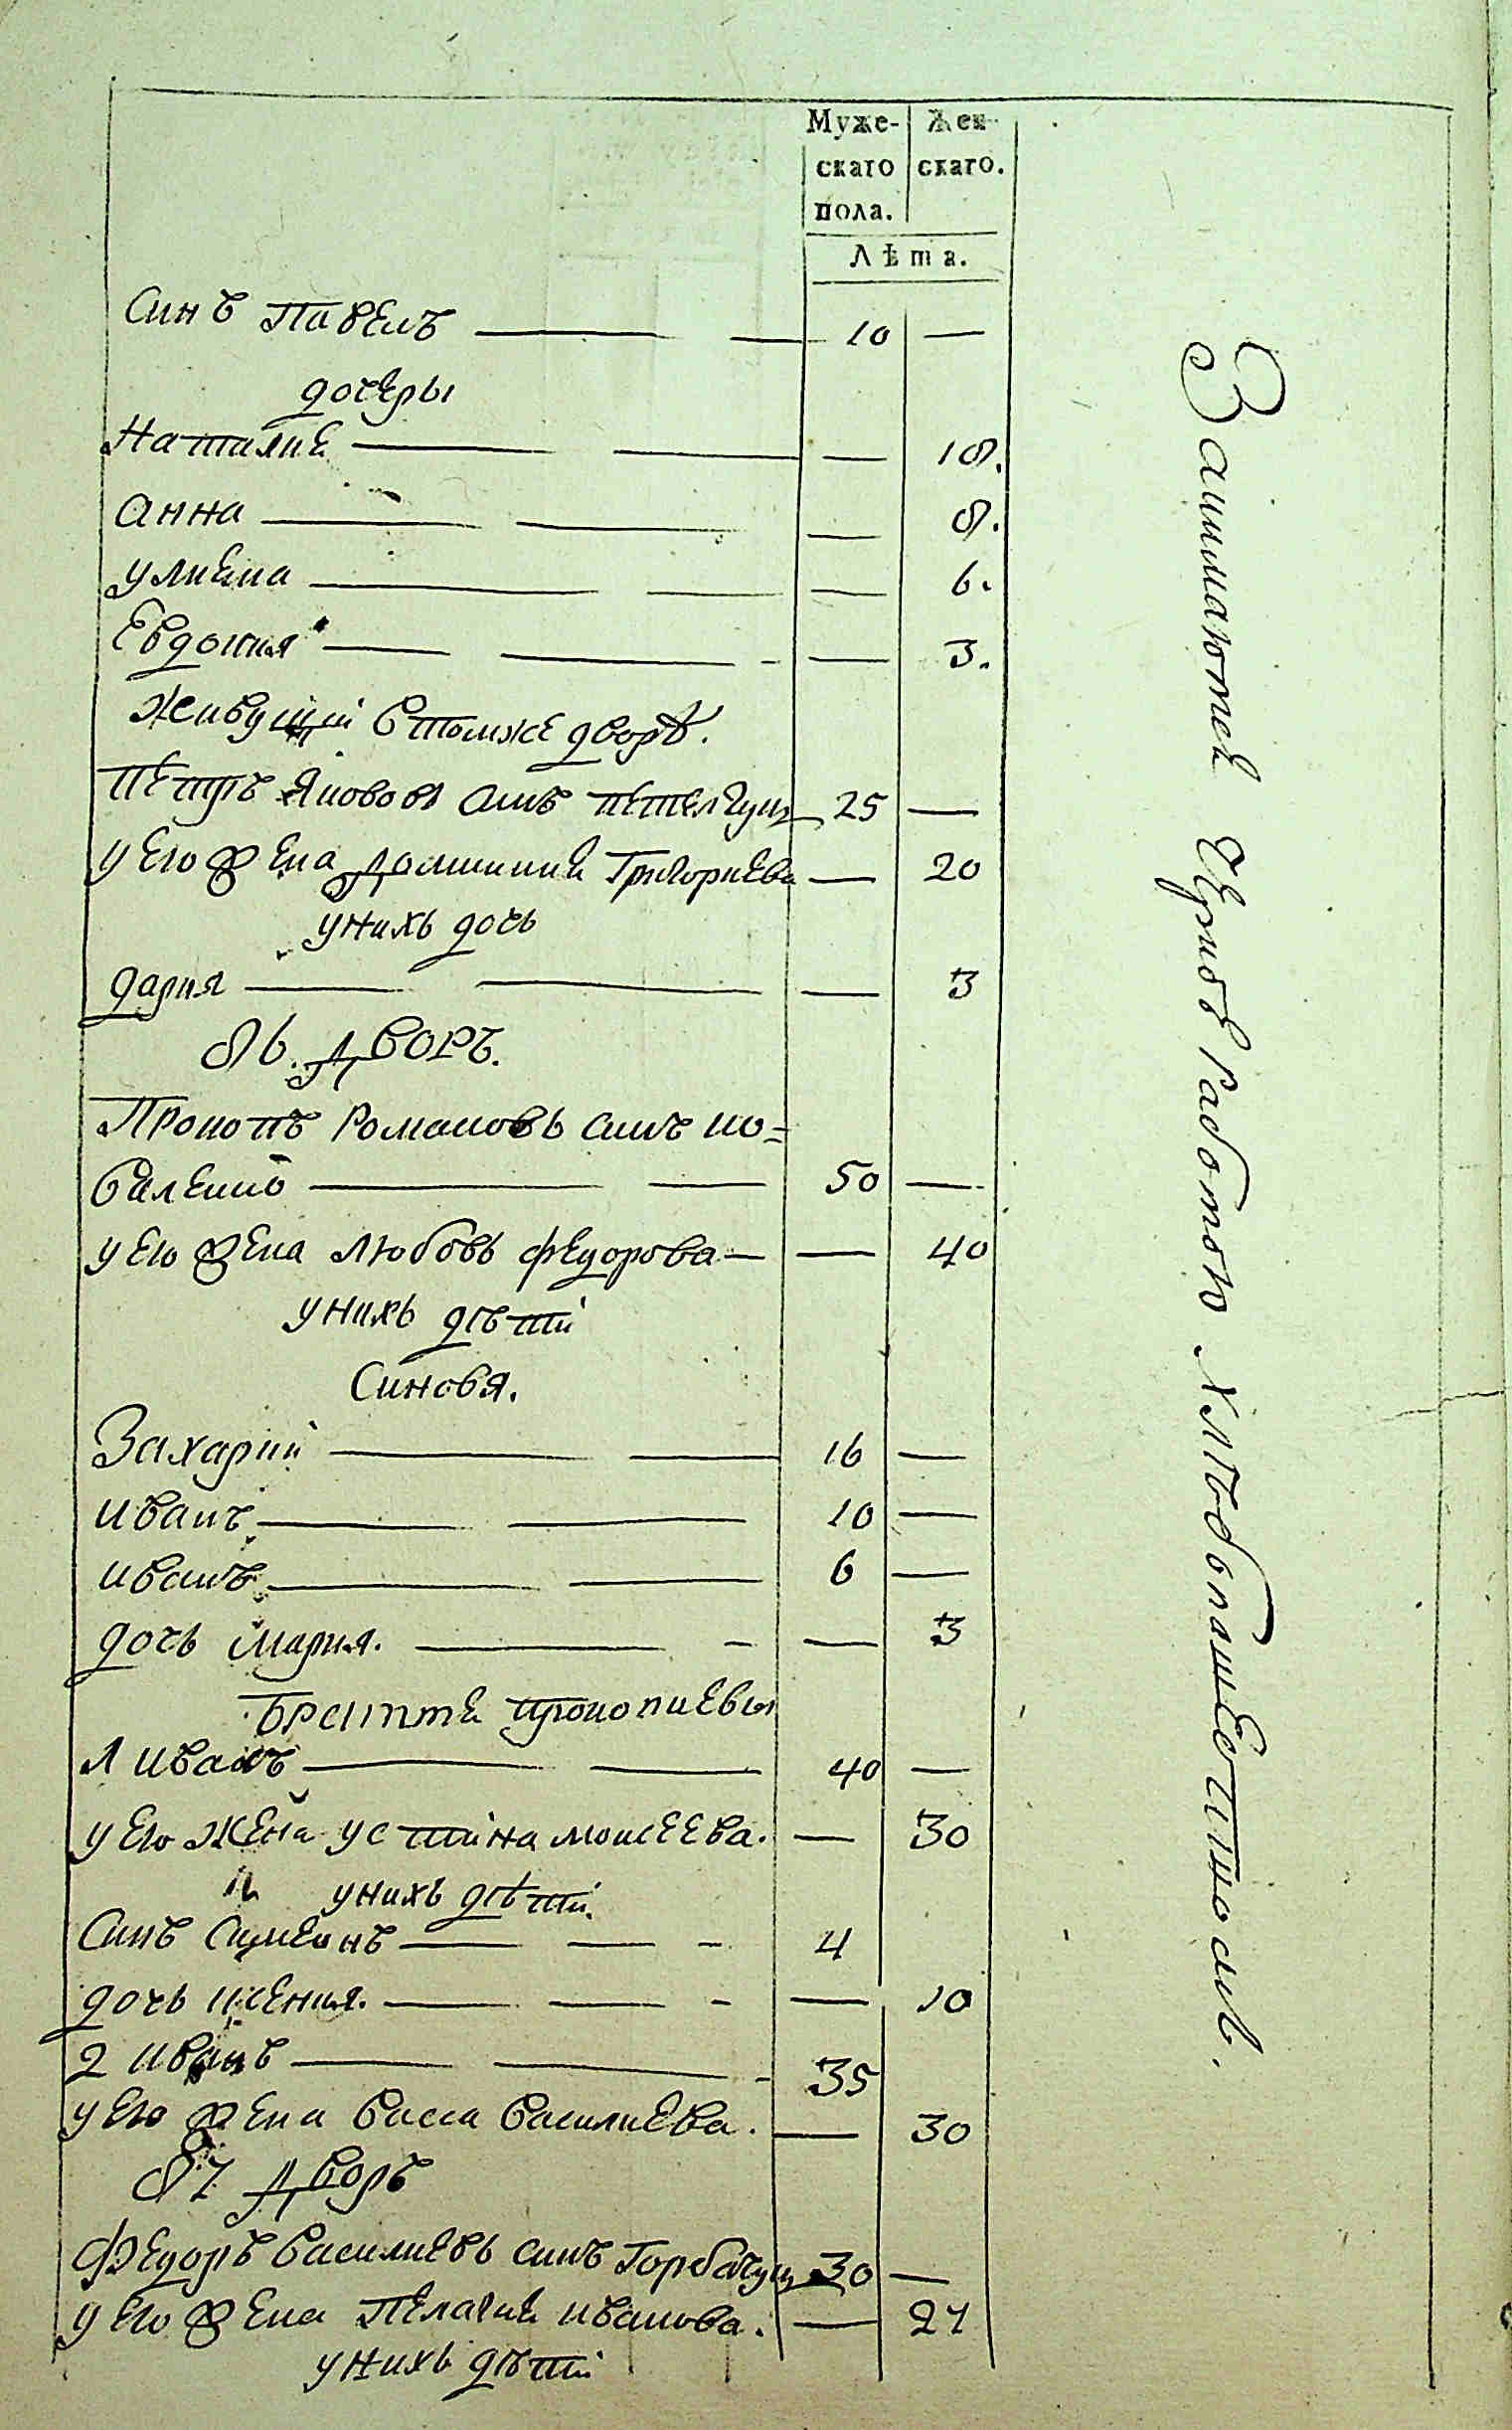 Муже- Жен-
скаго скаго.
пола.
Лѣта.
Синъ Павелъ 10 —
дочеры
Наталие — 18.
Анна — 8.
Улиена — 6.
Евдокия — 3.
Живущии втомже дворѣ.
Петръ Яковов синъ 25 —
у его жена Домникие Григориева — 20
унихъ дочь
Дария — 3
86. Дворъ.
Прокопъ Романовъ синъ Ко=
валенко 50 —
у его жена Любовь Федорова — 40
унихъ дѣти
Синовя.
Захарии 16 —
Иванъ 10 —
Иванъ 6 —
дочь Мария. — 3
Братте Прокопиевы
1 Иванъ 40 —
у его жена Устина Моисеева. — 30
унихъ дѣти.
Синъ Симеонъ 4
дочь Ксения. — 10
2 Иванъ 35
у его жена Васса Василиева. — 30
87 Дворъ
Федоръ Василиевъ синъ 30 —
у его жена Пелагие Иванова. — 27
унихъ дѣти
Занимаютсе Чернов работою хлѣбопашественною.